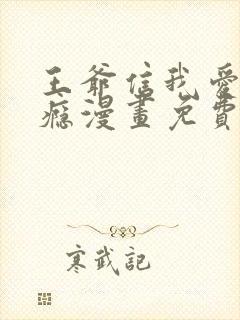 王爺信我愛
癮漫畫免費
寒武記